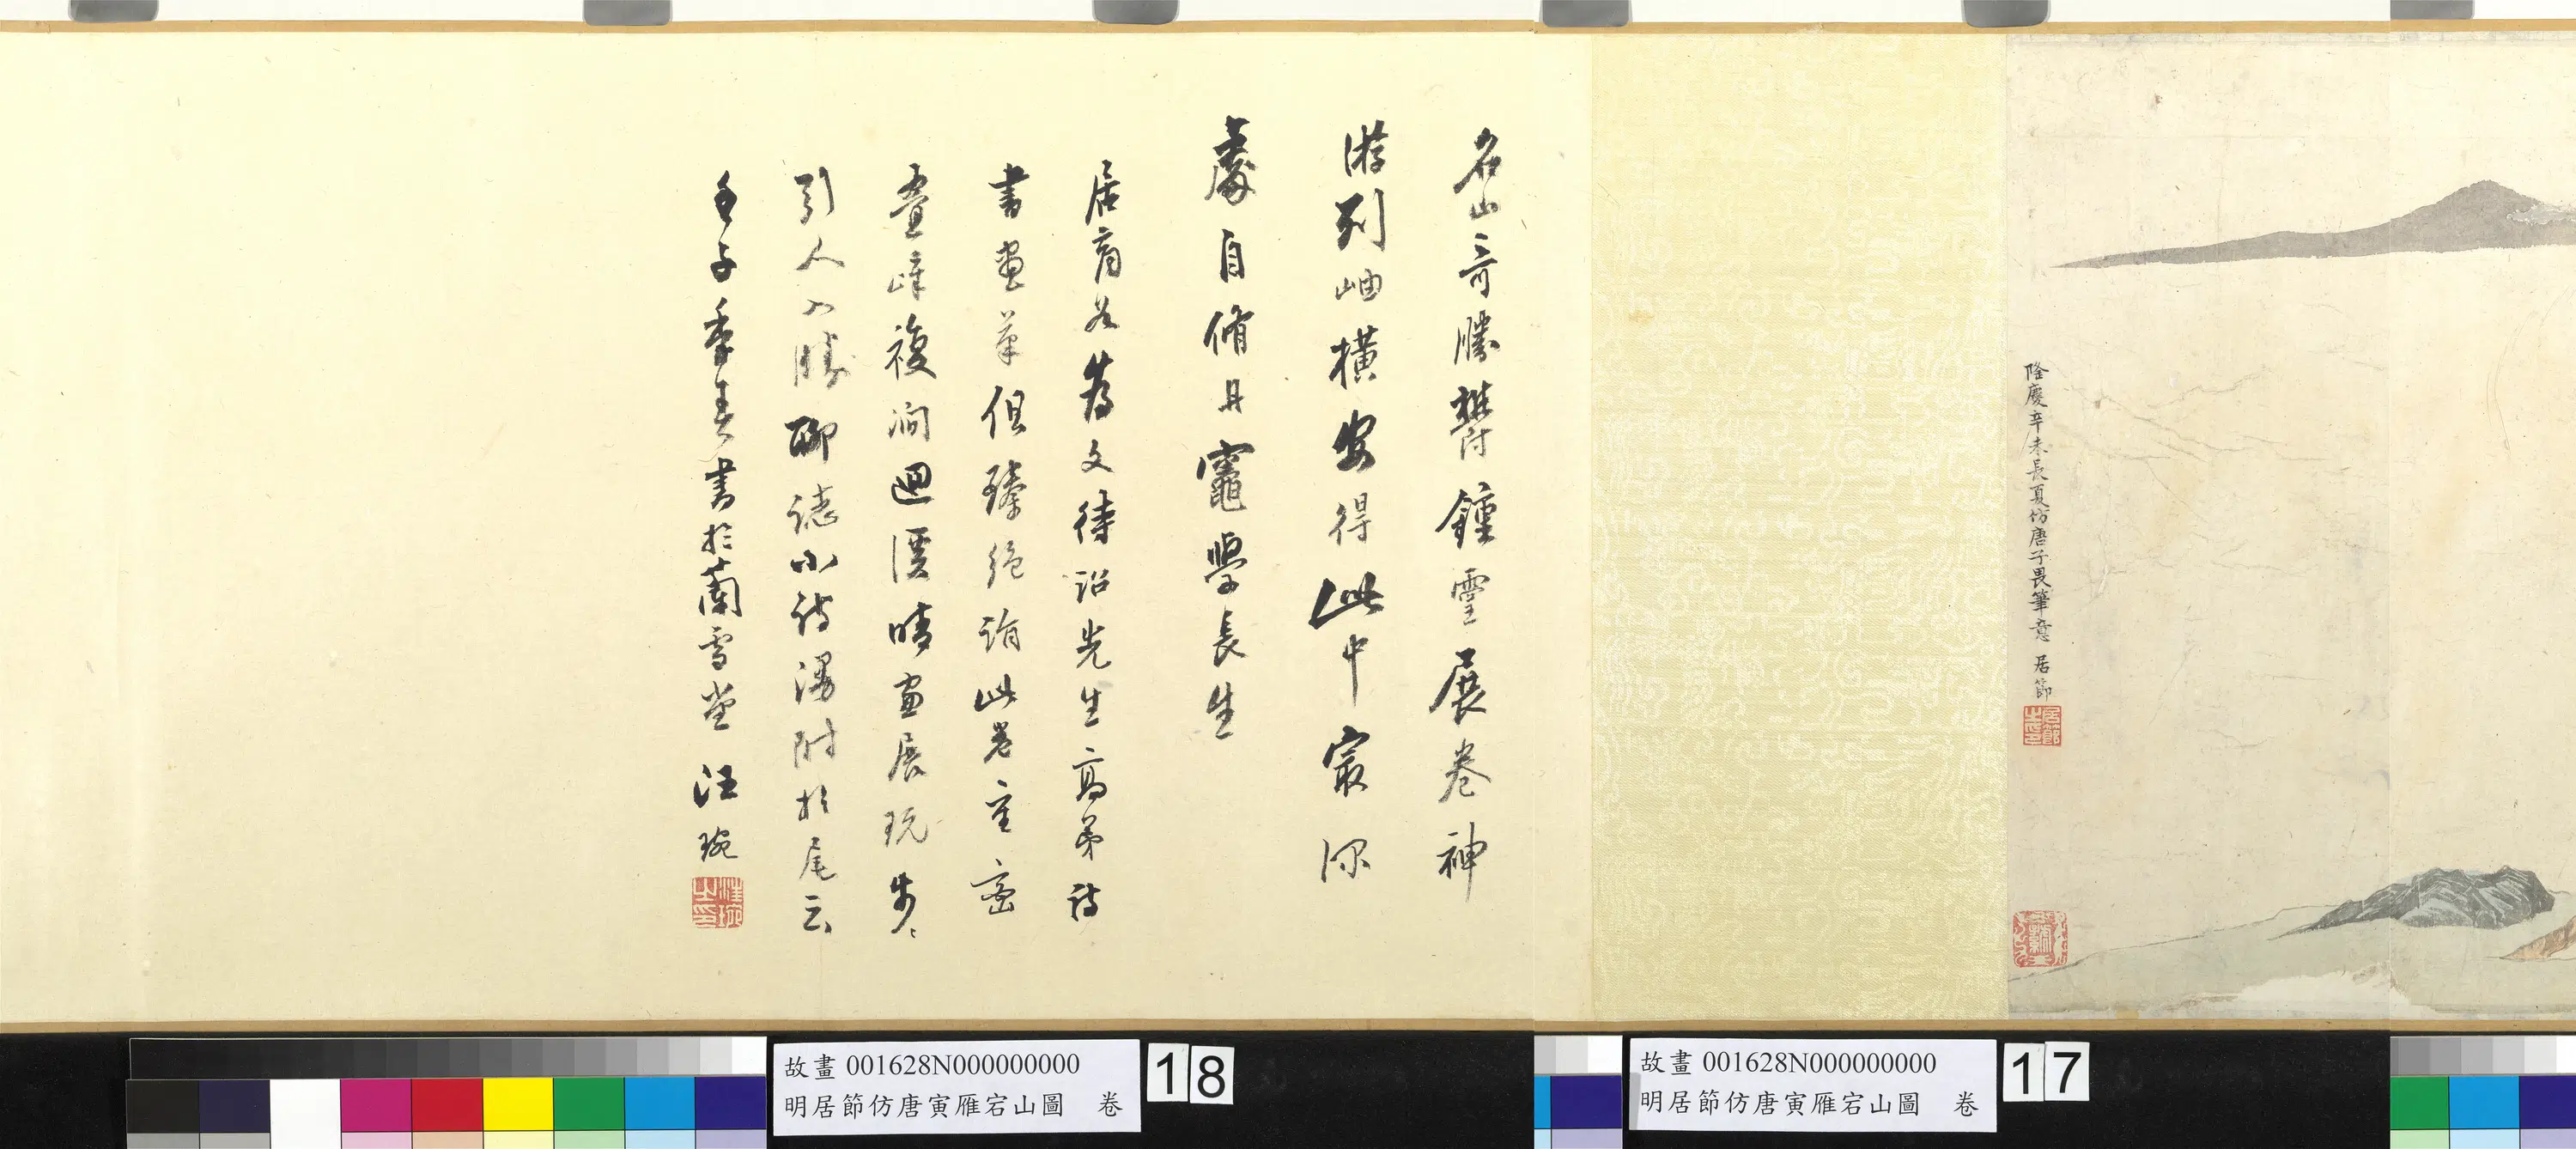 隆慶辛未長夏仿唐子畏筆意 居節
居節之印
名山奇勝鬱鍾靈展卷神
游列岫橫安得此中最深
處自脩丹竈學長生
居商谷為文待詔先生高弟詩
書畫筆但臻絕詣此卷重巒
疊嶂複澗迴溪晴窗展玩步々
引人入勝聊誌小詩漫附於尾云
壬子季春書於蘭雪堂 汪琬
汪琬之印
故畫 001628N000000000
明居節仿唐寅雁宕山圖 卷
17
故畫 001628N000000000
明居節仿唐寅雁宕山圖 卷
18